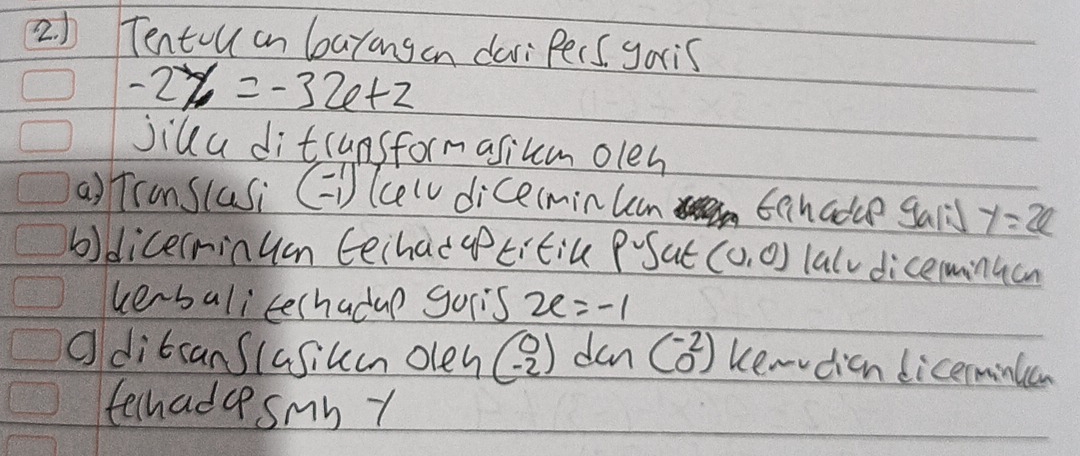 2.) Tentukan bayangan dari Pers. garis
-2y = -3x+2
jika ditransformasikan oleh
a) Translasi (-1 -1) lalu dicerminkan terhadap garis y=x
b) dicerminkan terhadap titik pusat (0,0) lalu dicerminkan
kembali terhadap garis x=-1
c) ditranslasikan oleh (0 -2) dan (-2 0) kemudian dicerminkan
terhadap smb y